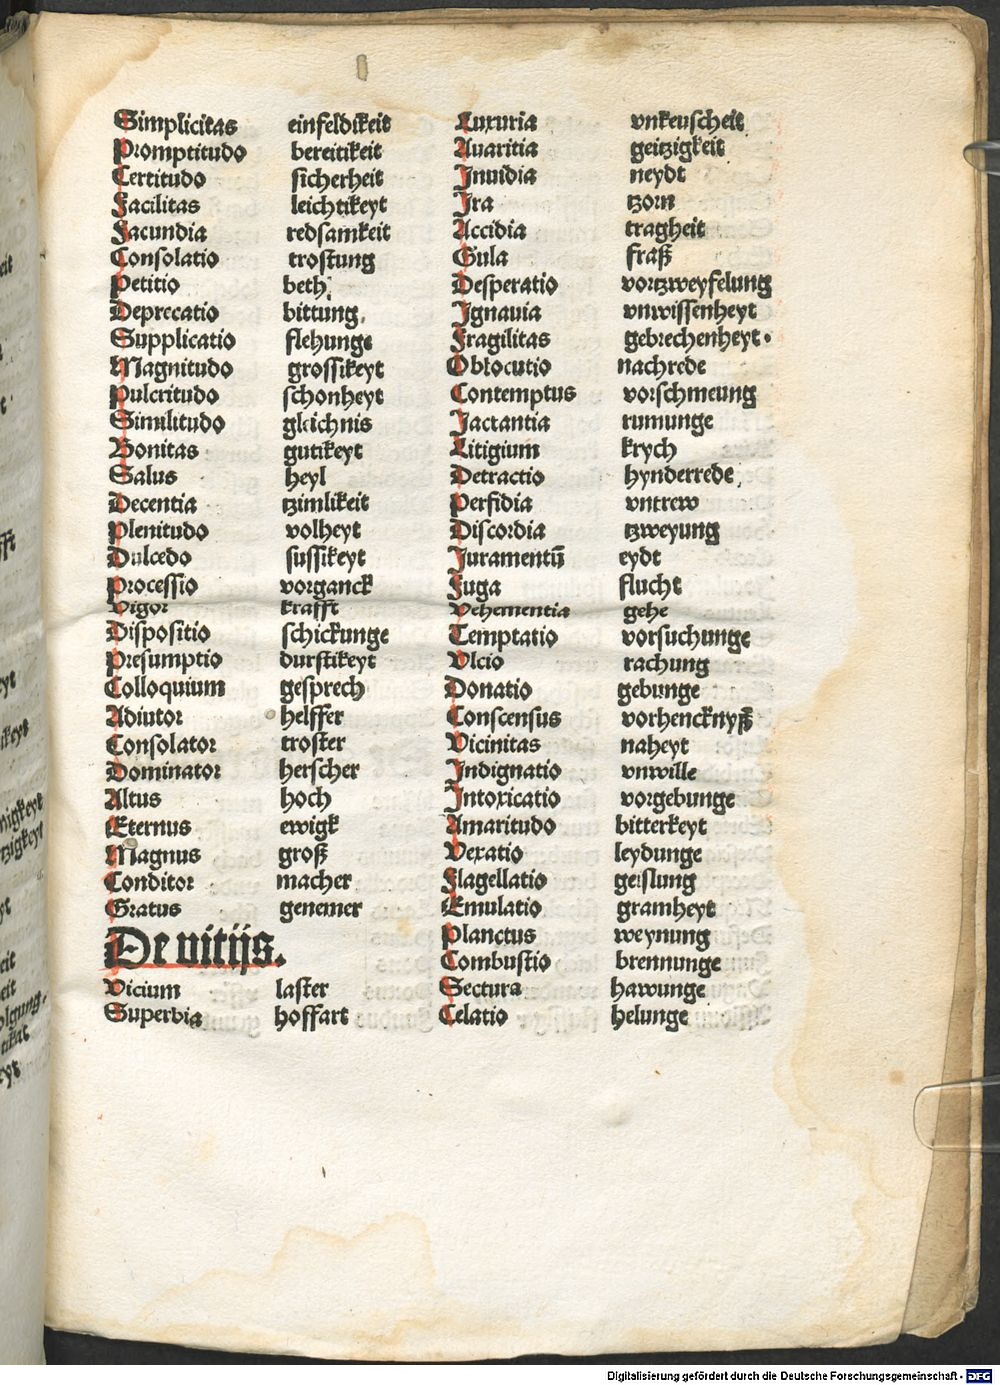 Simplicitas einfeldikeit
Promptitudo bereitikeit
Certitudo sicherheit
Facilitas leichtikeyt
Facundia redsamkeit
Consolatio trostung
Petitio beth
Deprecatio bittung.
Supplicatio flehunge
Magnitudo grossikeyt
Pulcritudo schonheyt
Similitudo gleichnis
Bonitas gutikeyt
Salus heyl
Decentia tzimlikeit
Plenitudo volheyt
Dulcedo sussikeyt
Processio vorganck
Vigor krafft
Dispositio schickunge
Presumptio durstikeyt
Colloquium gesprech
Adiutor helffer
Consolator troster
Dominator herscher
Altus hoch
Eternus ewigk
Magnus groß
Conditor macher
Gratus genemer
De vitijs.
Vicium laster
Superbia hoffart
Luxuria vnkeuscheit
Auaritia geitzigkeit
Inuidia neydt
Ira tzorn
Accidia tragheit
Gula fraß
Desperatio vortzweyfelung
Ignauia vnwissenheyt
Fragilitas gebrechenheyt.
Oblocutio nachrede
Contemptus vorschmeung
Jactantia rumunge
Litigium krych
Detractio hynderrede
Perfidia vntrew
Discordia tzweyung
Juramentū eydt
Fuga flucht
Vehementia gehe
Temptatio vorsuchunge
Vlcio rachung
Donatio gebunge
Conscensus vorhencknyß
Vicinitas naheyt
Indignatio vnwille
Intoxicatio vorgebunge
Amaritudo bitterkeyt
Vexatio leydunge
Flagellatio geislung
Emulatio gramheyt
Planctus weynung
Combustio brennunge
Sectura hawunge
Celatio helunge
Digitalisierung gefördert durch die Deutsche Forschungsgemeinschaft - DFG